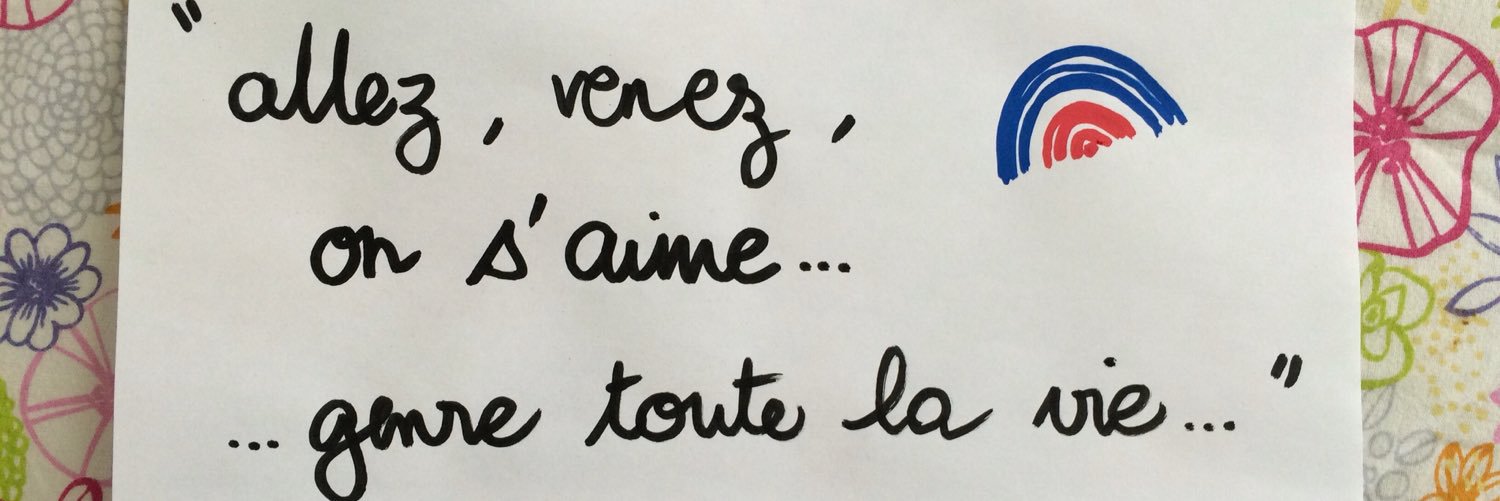 "allez, venez,
on s'aime...
...genre toute la vie..."